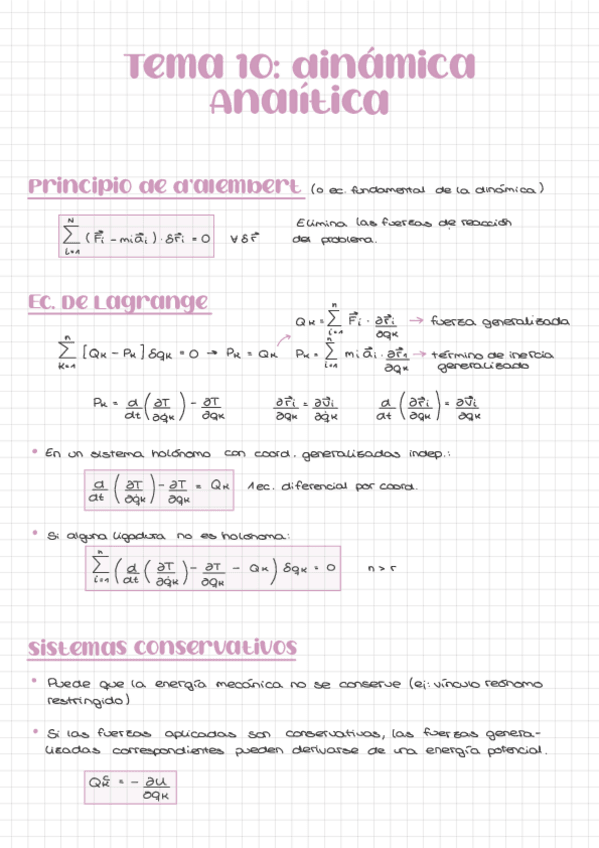 Tema 10: dinámica
Analítica
Principio de d'alembert (o ec. fundamental de la dinámica)
N Σ i=1 (F⃗i - mi a⃗i) · δr⃗i = 0 ∀ δr⃗
Elimina las fuerzas de reacción
del problema.
Ec. De Lagrange
Qk = n Σ i=1 F⃗i · ∂r⃗i/∂qk → fuerza generalizada
n Σ k=1 [Qk - Pk] δqk = 0 → Pk = Qk
Pk = n Σ i=1 mi a⃗i · ∂r⃗1/∂qk → término de inercia
generalizado
Pk = d/dt (∂T/∂q̇k) - ∂T/∂qk
∂r⃗i/∂qk = ∂v⃗i/∂q̇k
d/dt (∂r⃗i/∂qk) = ∂v⃗i/∂qk
• En un sistema holónomo con coord. generalizadas indep.:
d/dt (∂T/∂q̇k) - ∂T/∂qk = Qk 1 ec. diferencial por coord.
• Si alguna ligadura no es holonoma:
n Σ i=1 (d/dt (∂T/∂q̇k) - ∂T/∂qk - Qk) δqk = 0 n > r
sistemas conservativos
• Puede que la energía mecánica no se conserve (ej: vínculo reónomo
restringido)
• Si las fuerzas aplicadas son conservativas, las fuerzas genera-
lizadas correspondientes pueden derivarse de una energía potencial.
Qkᶜ = - ∂U/∂qk